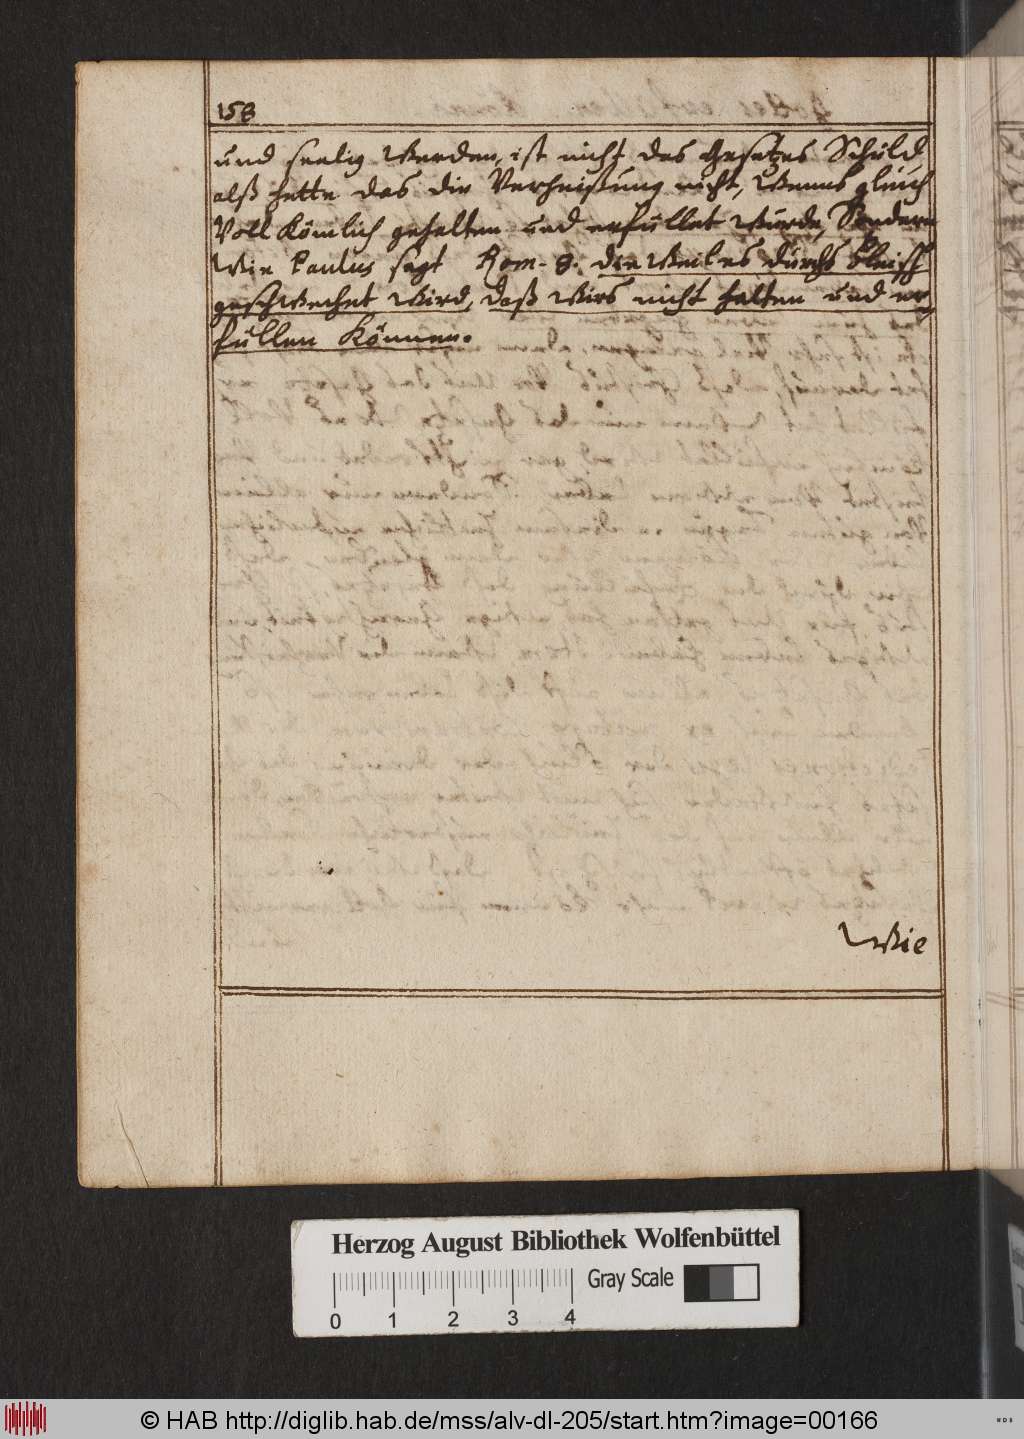 158
und seelig Werden, ist nicht des Gesetzes Schüld
alß hette das die Verheißung nicht, Wenns gleich
Voll Kömlich gehalten und erfüllet Würde, Sondern
Wie Paulus sagt Rom. 8. die Weil es dürchs Fleisch
geschWechet Wird, daß Wirs nicht halten und er,
füllen Können.
Wie
Herzog August Bibliothek Wolfenbüttel
Gray Scale
0 1 2 3 4
© HAB http://diglib.hab.de/mss/alv-dl-205/start.htm?image=00166